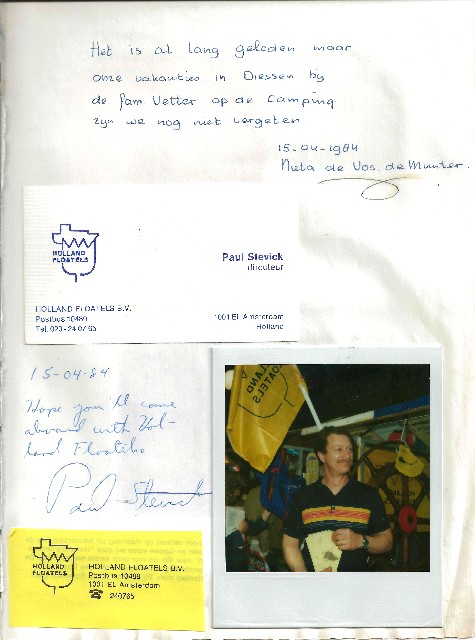 Het is al lang geleden maar
onze vakanties in Diessen bij
de fam Vetter op de Camping
zijn we nog niet vergeten
15-04-1984
Nieta de Vos. de Munter.
HOLLAND
FLOATELS
Paul Stevick
directeur
HOLLAND FLOATELS B.V.
Postbus 10489
Tel. 020-24 07 65
1001 EL Amsterdam
Holland
15-04-84
Hope you'll come
aboard with Hol-
land Floatels
Paul Stevick
HOLLAND
FLOATELS
HOLLAND
FLOATELS
HOLLAND FLOATELS B.V.
Postbus 10489
1001 EL Amsterdam
240765